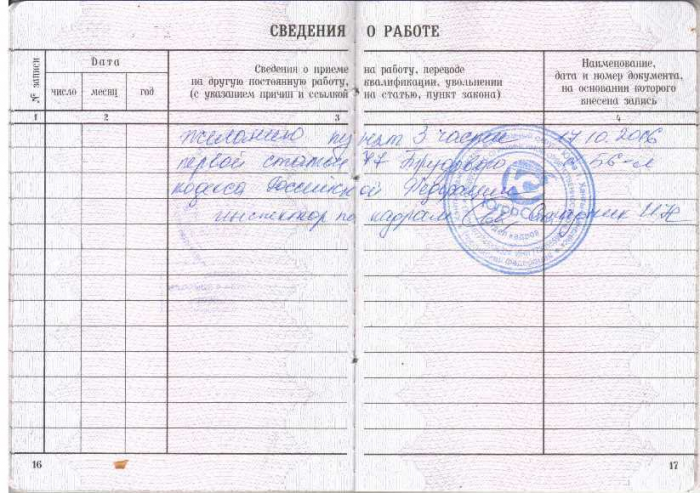 СВЕДЕНИЯ О РАБОТЕ
№ записи
Дата
число месяц год
Сведения о приеме на работу, переводе
на другую постоянную работу, квалификации, увольнении
(с указанием причин и ссылкой на статью, пункт закона)
Наименование,
дата и номер документа,
на основании которого
внесена запись
1 2 3 4
желанию пункт 3 части 17.10.2016
первой статьи 77 Трудового 56-л
кодекса Российской Федерации
инспектор по кадрам
16 17